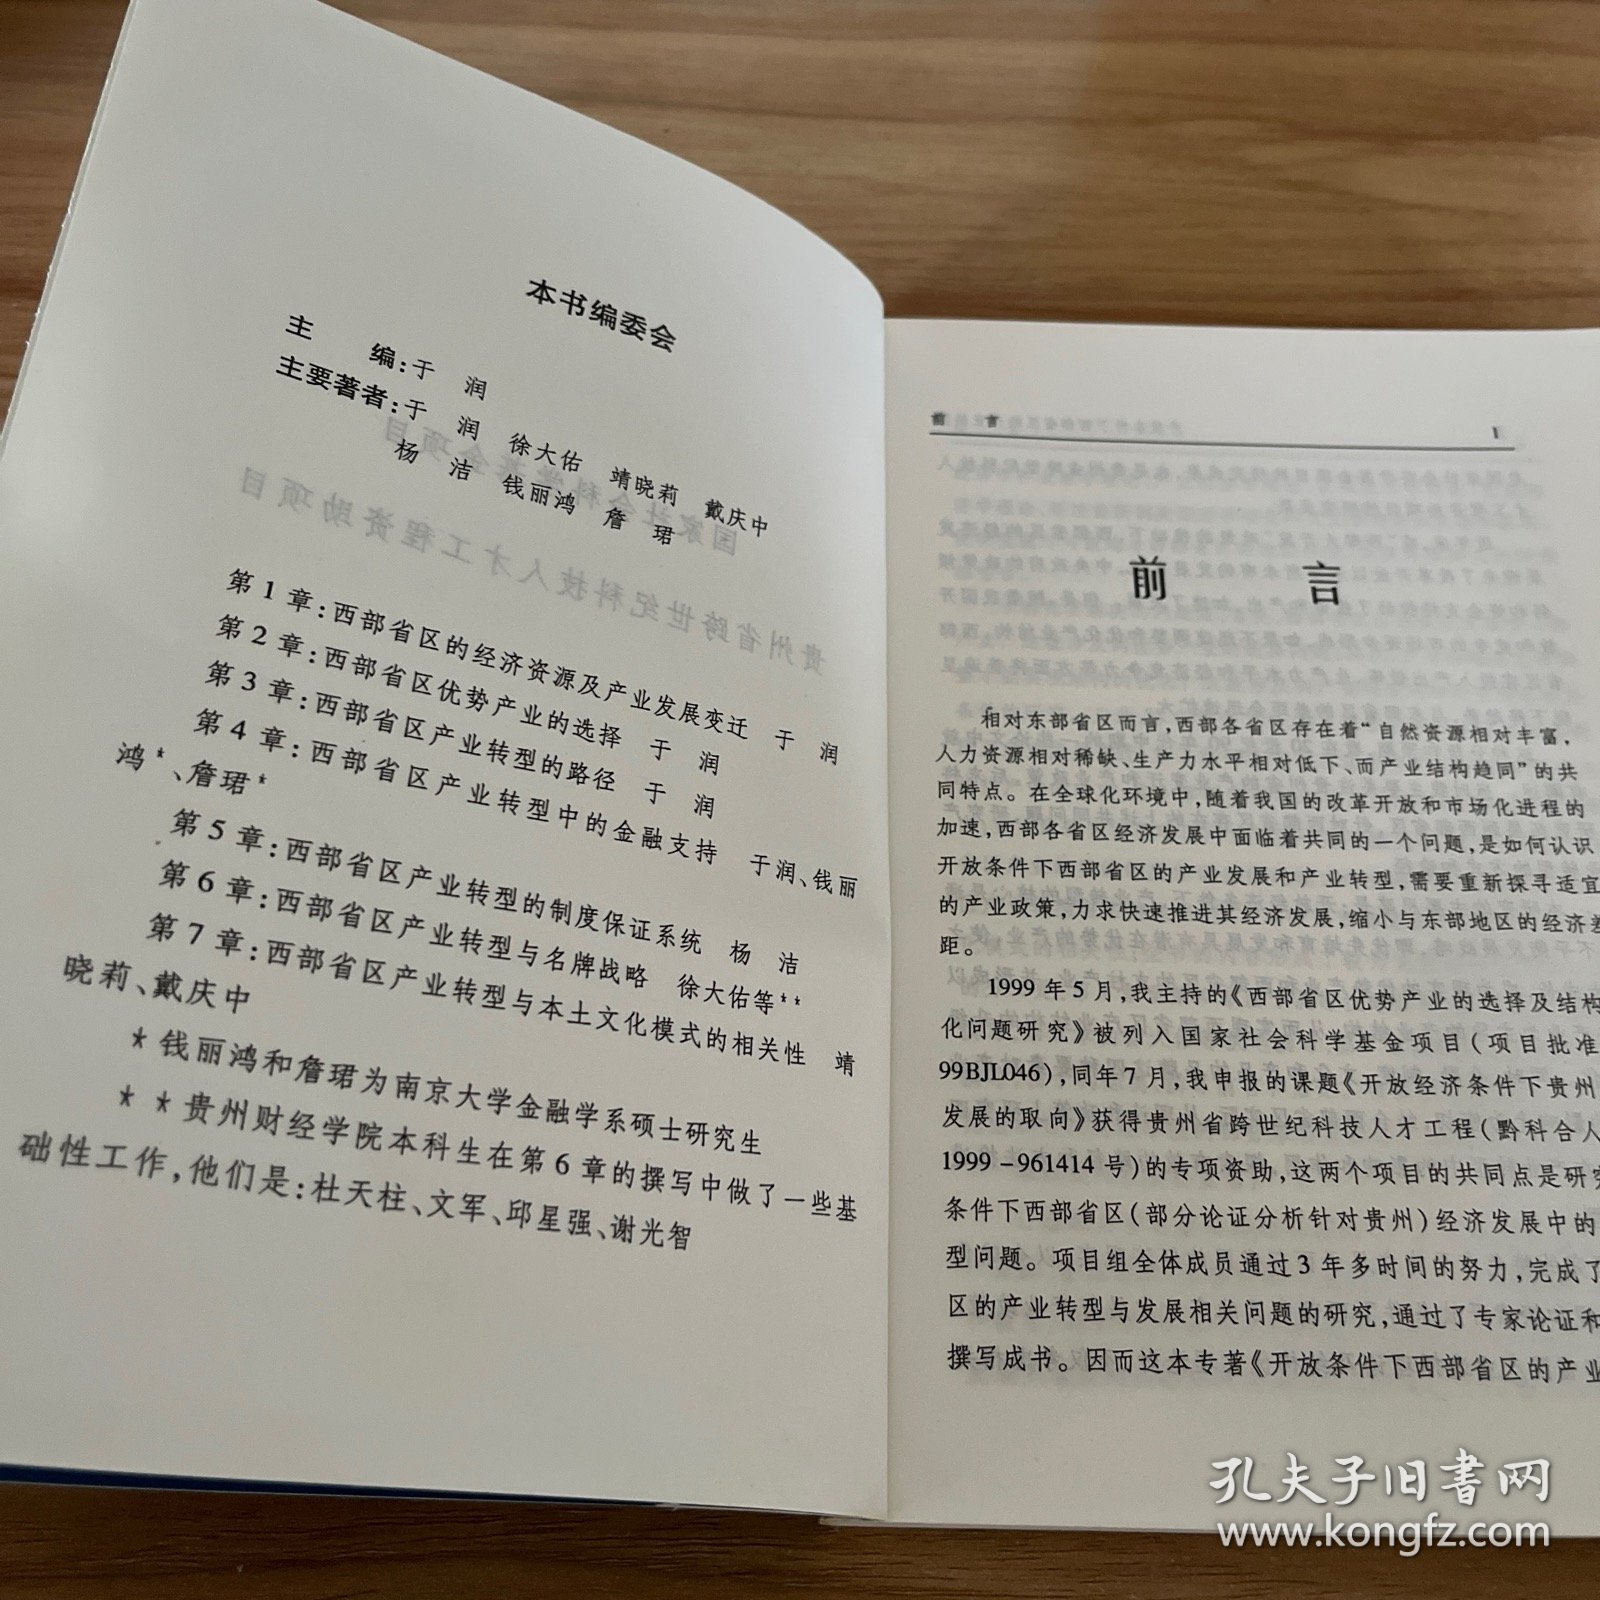 本书编委会
主 编:于 润
主要著者:于 润 徐大佑 靖晓莉 戴庆中
杨 洁 钱丽鸿 詹 珺
第1章:西部省区的经济资源及产业发展变迁 于 润
第2章:西部省区优势产业的选择 于 润
第3章:西部省区产业转型的路径 于 润
第4章:西部省区产业转型中的金融支持 于润、钱丽
鸿*、詹珺*
第5章:西部省区产业转型的制度保证系统 杨 洁
第6章:西部省区产业转型与名牌战略 徐大佑等**
第7章:西部省区产业转型与本土文化模式的相关性 靖
晓莉、戴庆中
*钱丽鸿和詹珺为南京大学金融学系硕士研究生
**贵州财经学院本科生在第6章的撰写中做了一些基
础性工作,他们是:杜天柱、文军、邱星强、谢光智
前 言 1
前 言
相对东部省区而言,西部各省区存在着“自然资源相对丰富,
人力资源相对稀缺、生产力水平相对低下、而产业结构趋同”的共
同特点。在全球化环境中,随着我国的改革开放和市场化进程的
加速,西部各省区经济发展中面临着共同的一个问题,是如何认识
开放条件下西部省区的产业发展和产业转型,需要重新探寻适宜
的产业政策,力求快速推进其经济发展,缩小与东部地区的经济差
距。
1999年5月,我主持的《西部省区优势产业的选择及结构
化问题研究》被列入国家社会科学基金项目(项目批准
99BJL046),同年7月,我申报的课题《开放经济条件下贵州
发展的取向》获得贵州省跨世纪科技人才工程(黔科合人
1999-961414号)的专项资助,这两个项目的共同点是研究
条件下西部省区(部分论证分析针对贵州)经济发展中的
型问题。项目组全体成员通过3年多时间的努力,完成了
区的产业转型与发展相关问题的研究,通过了专家论证和
撰写成书。因而这本专著《开放条件下西部省区的产业
孔夫子旧书网
www.kongfz.com